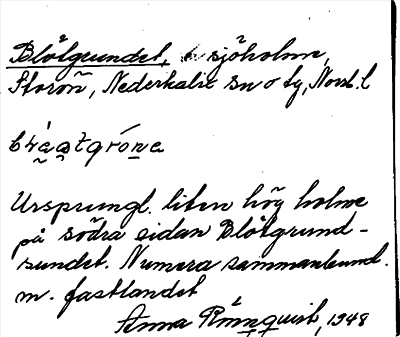 Blötgrundet, sjöholme,
Storön, Nederkalix sn o tg, Norrb. l
Ursprungl. liten hög holme
på södra sidan Blötgrund-
sundet. Numera sammanbund.
m. fastlandet
Anna Rönnquist, 1948